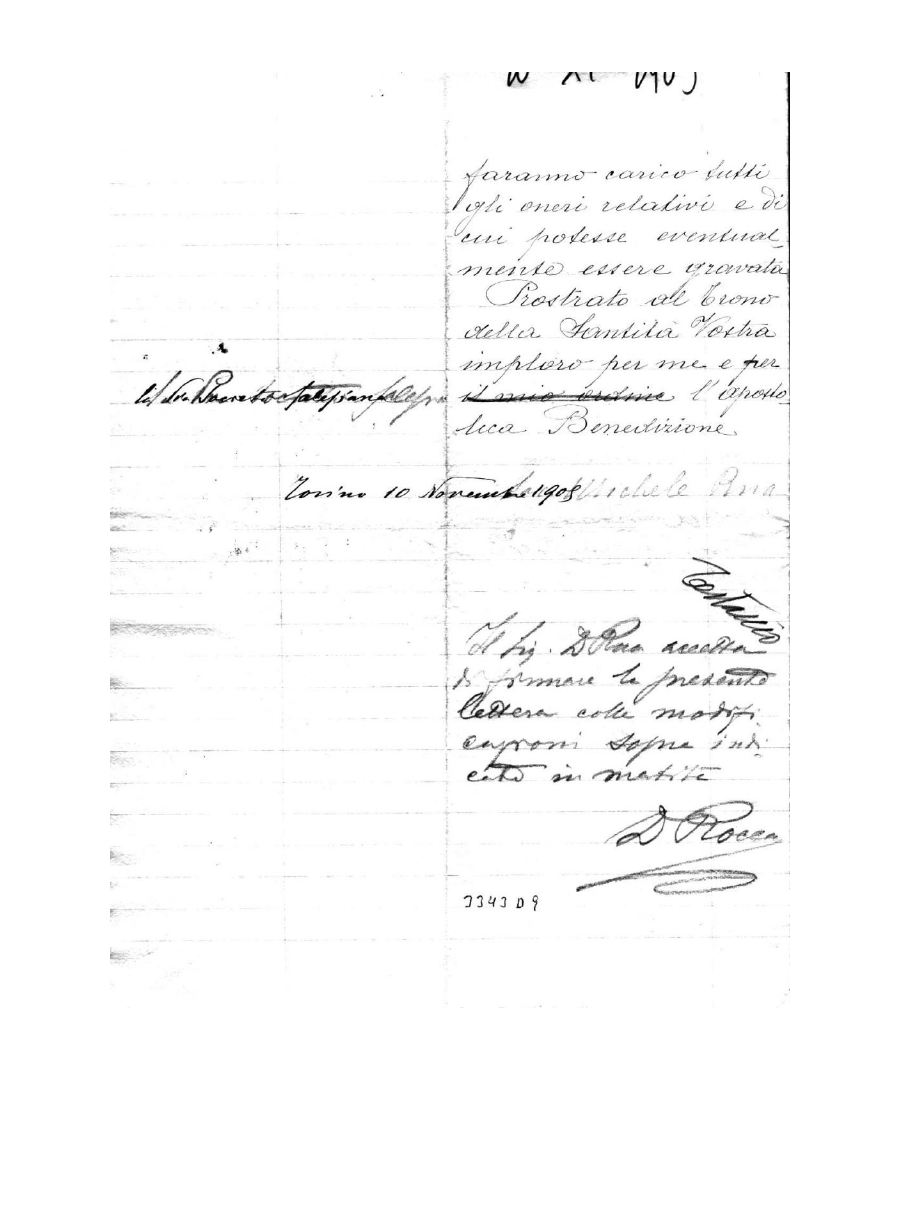 XI 1905
faranno carico tutti
gli oneri relativi e di
cui potesse eventual-
mente essere gravata
Prostrato al Trono
della Santità Vostra
imploro per me e per
il mio ordine l'aposto-
lica Benedizione
Torino 10 Novembre 1905 Michele Rua
Testamio
Il Sig. D Rua accetta
di firmare la presente
lettera colle modifi-
cazioni sopra indi-
cate in matita
D Rocca
3343 D 9